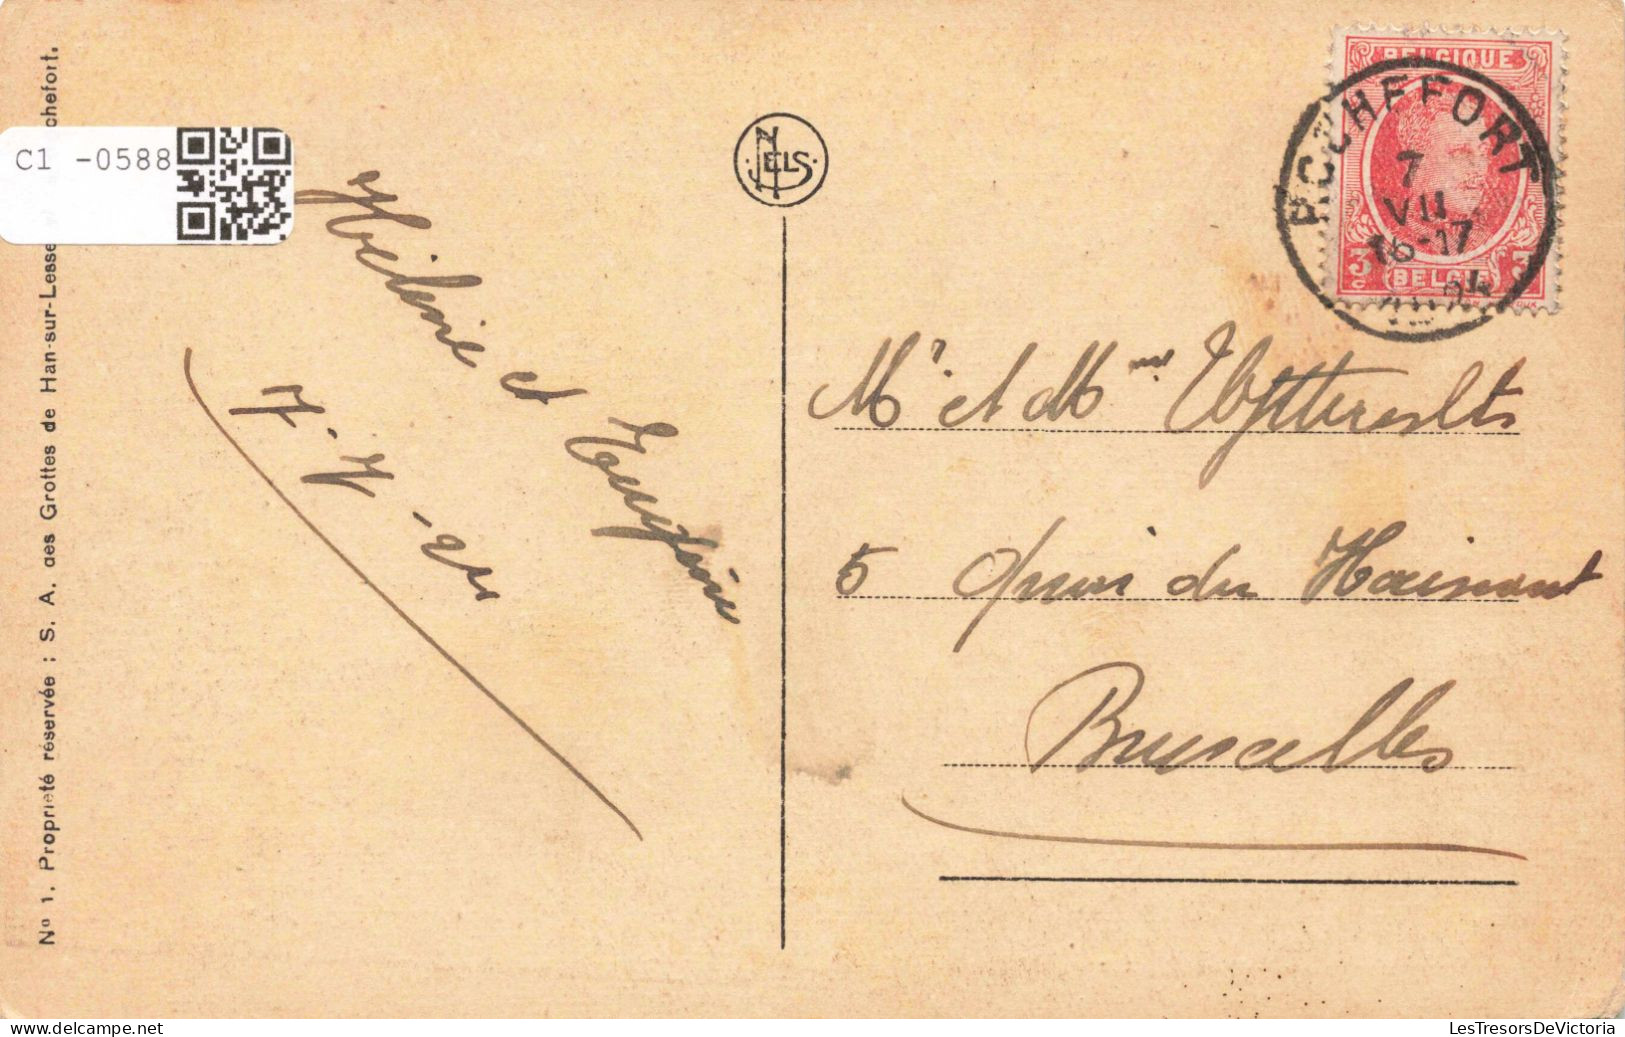 C1 -0588
Nº 1. Propriété réservée : S. A. des Grottes de Han-sur-Lesse chefort.
Hélène et Eugénie
7-V-24
NELS
BELGIQUE
3 BELGIE 3
ROCHEFORT
7
VII
16-17
24
Mr et Mme
5 Quai du Hainaut
Bruxelles
LesTresorsDeVictoria
www.delcampe.net